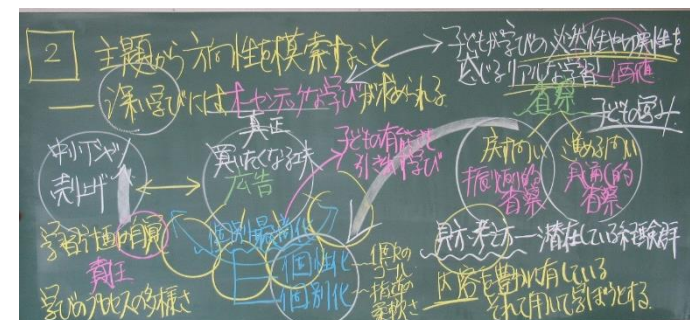 2
主題から方向性を模索すること
― 深い学びにはオーセンティックな学びが求められる
真正
子どもが学びの必然性や切実性を
感じるリアルな学習 ― 価値
省察
子どもの
売上げ
買いたくなる
広告
子どもの有能さを
引き出す学び
戻す問い
振り返り的
省察
進める問い
見通し的
省察
責任
学びのプロセスの多様さ
個別最適化
個性化
個別化
個次の
ゴール
指導の
柔軟さ
見方・考え方 ― 潜在している経験群
内容を豊かに有している
それを用いて学ぼうとする